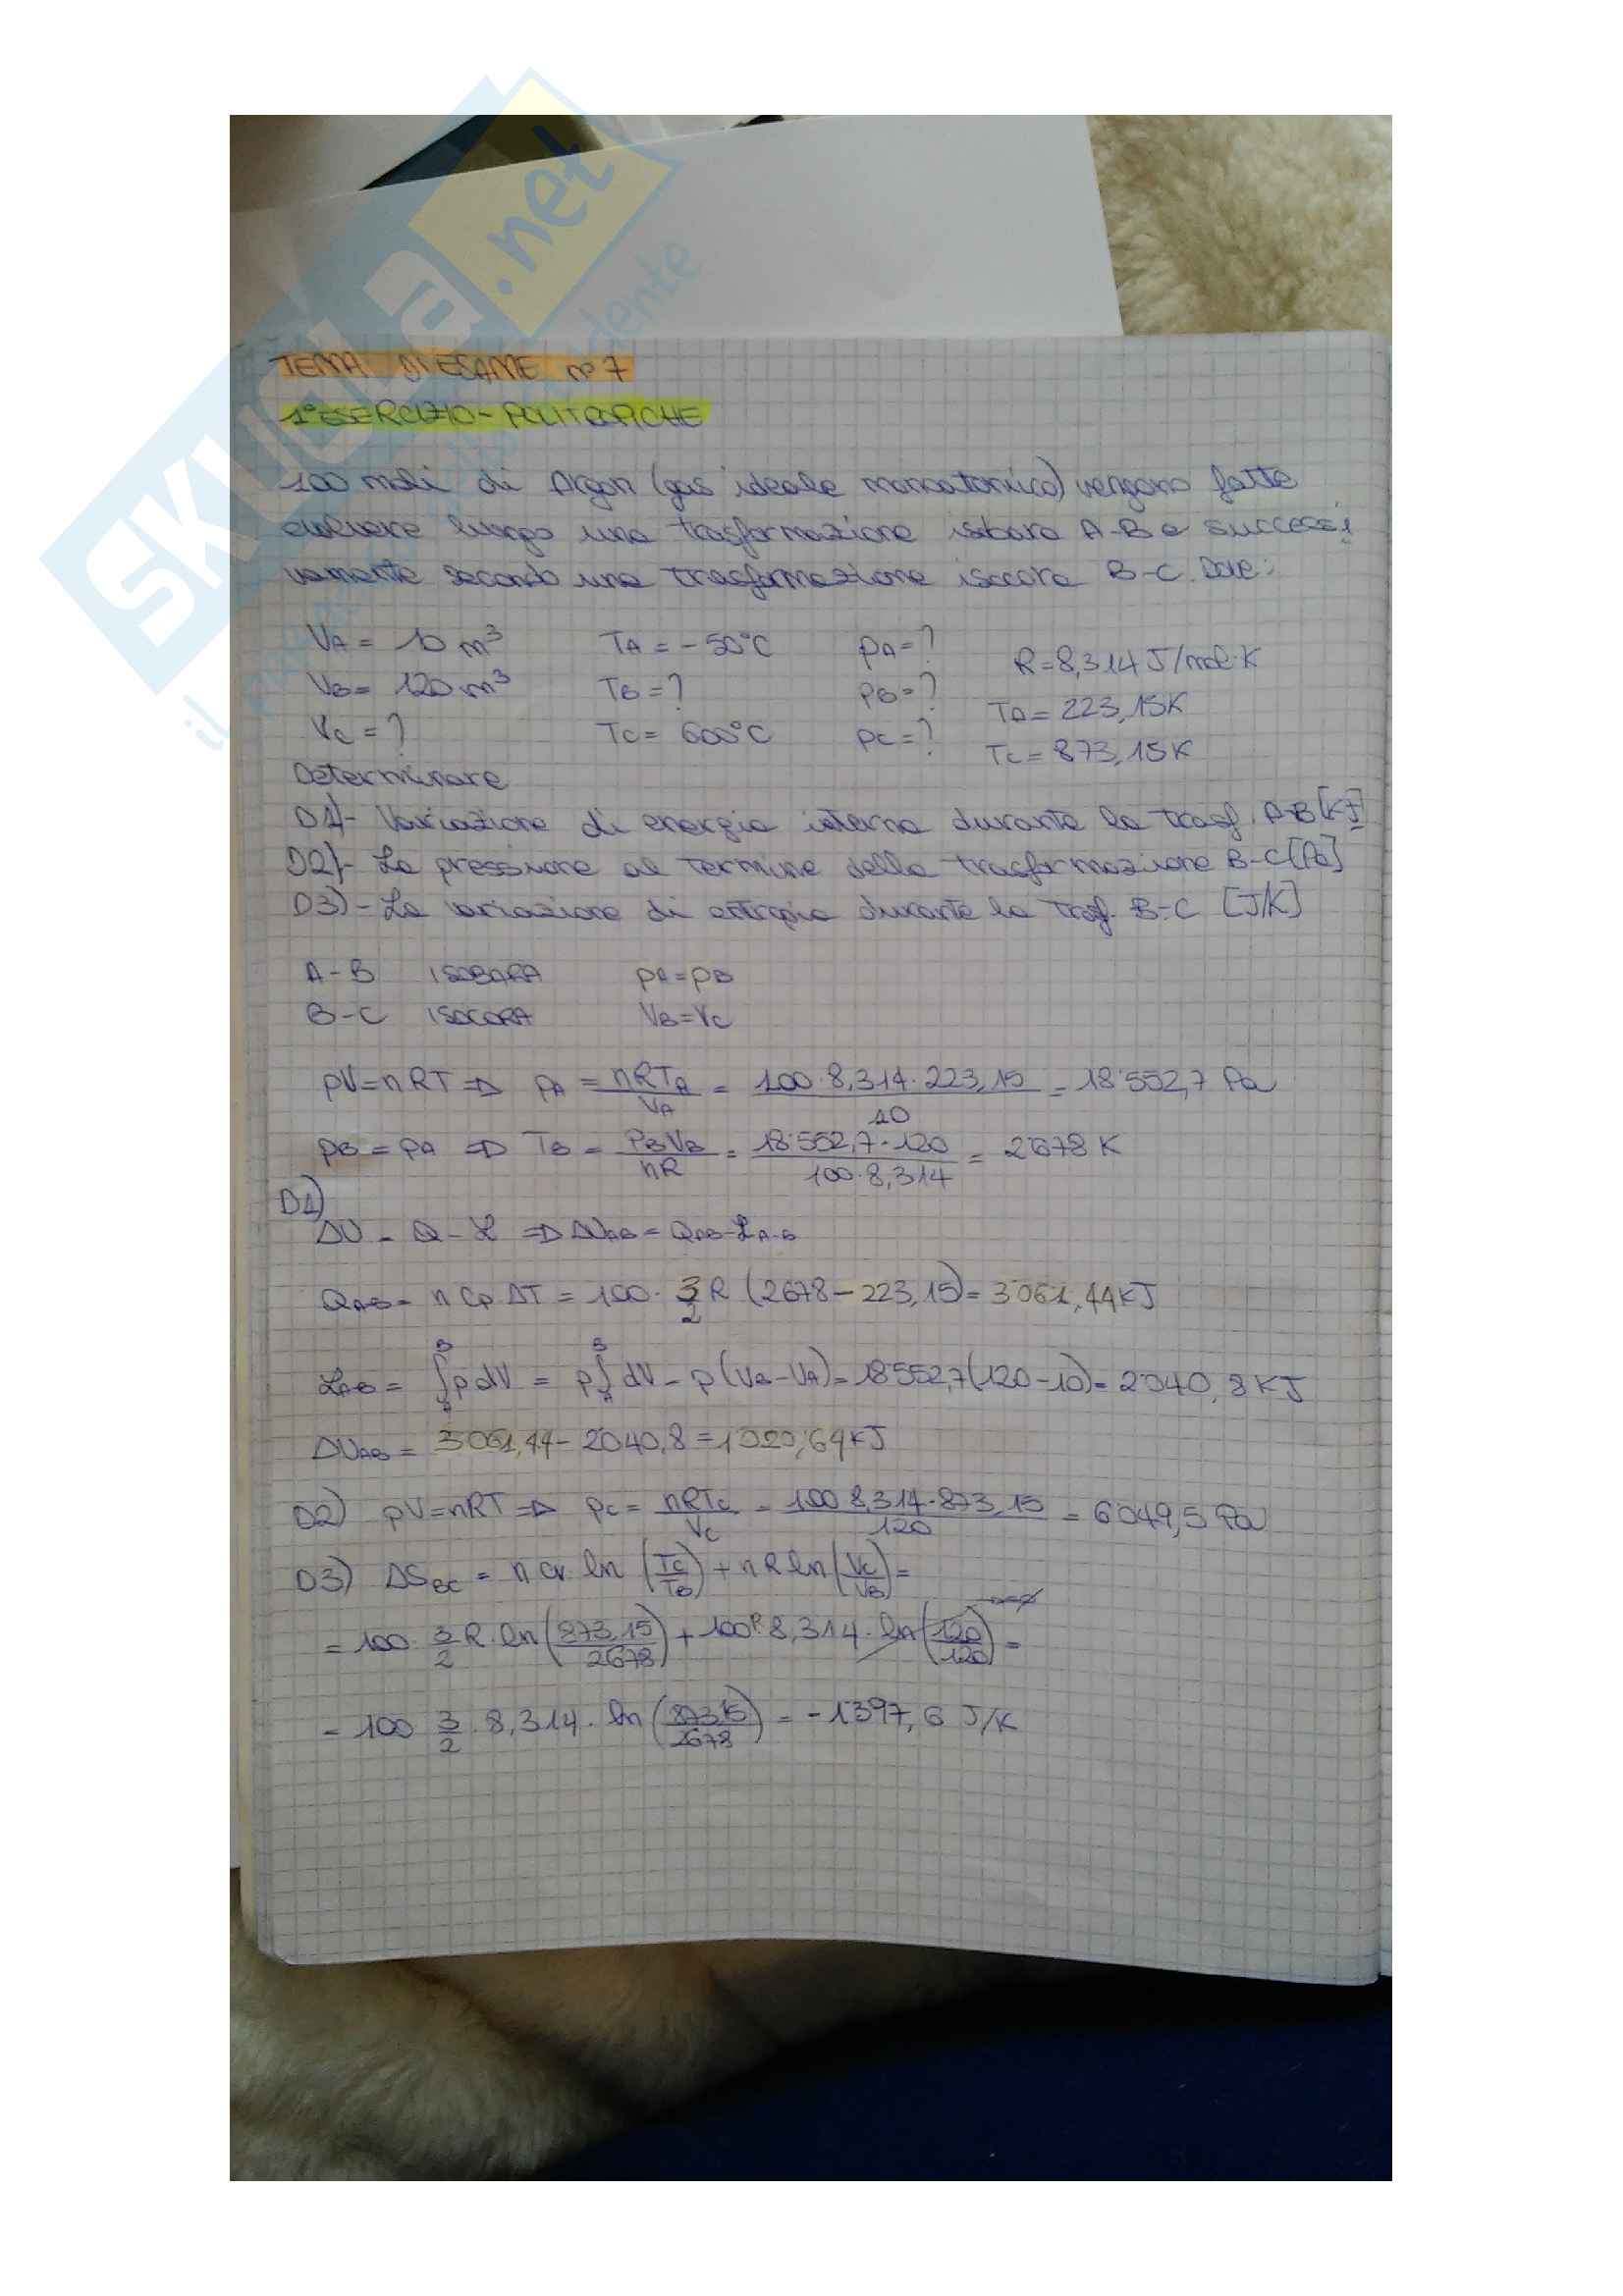 SKUOLA.net
TEMA DI ESAME n°7
1° ESERCIZIO - POLITROPICHE
100 moli di Argon (gas ideale monoatomico) vengono fatte
evolvere lungo una trasformazione isobara A-B e successi
vamente secondo una trasformazione isocora B-C. Date:
VA = 10 m³ TA = -50°C pA = ? R = 8,314 J/mol·K
VB = 120 m³ TB = ? pB = ? TA = 223,15K
VC = ? TC = 600°C pC = ? TC = 873,15K
Determinare
D1)- Variazione di energia interna durante la trasf. A-B [KJ]
D2)- La pressione al termine della trasformazione B-C [Pa]
D3)- La variazione di entropia durante la trasf. B-C [J/K]
A-B ISOBARA pA = pB
B-C ISOCORA VB = VC
pV = nRT ⇒ pA = nRTA/VA = 100·8,314·223,15/10 = 18'552,7 Pa
pB = pA ⇒ TB = PBVB/nR = 18'552,7·120/100·8,314 = 2'678 K
D1)
ΔU = Q - L ⇒ ΔUAB = QAB - LA-B
QAB = n Cp ΔT = 100· 3/2 R (2678 - 223,15) = 3'061,44 KJ
LAB = ∫AB p dV = p ∫AB dV = p (VB - VA) = 18'552,7 (120 - 10) = 2'040,8 KJ
ΔUAB = 3061,44 - 2040,8 = 1'020,64 KJ
D2) pV = nRT ⇒ pC = nRTC/VC = 100 8,314·873,15/120 = 6'049,5 Pa
D3) ΔSBC = n cv ln (TC/TB) + nR ln (VC/VB) =
= 100· 3/2 R· ln (873,15/2678) + 100· 8,314· ln (120/120) =
= 100 3/2 · 8,314· ln (873,15/2678) = -1'397,6 J/K